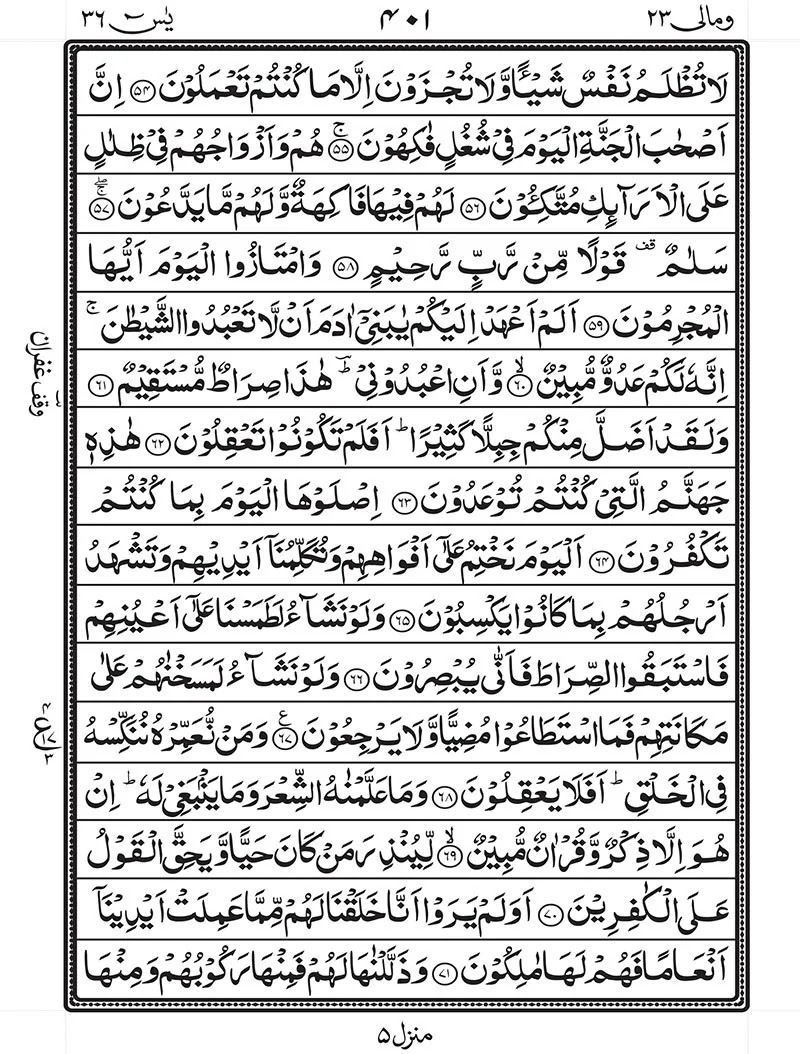 ومالی ۲۳
۴۰۱
یٰسٓ ۳۶
لَا تُظْلَمُ نَفْسٌ شَیْـًٔا وَّلَا تُجْزَوْنَ اِلَّا مَا كُنْتُمْ تَعْمَلُوْنَ ۝۵۴ اِنَّ
اَصْحٰبَ الْجَنَّةِ الْیَوْمَ فِیْ شُغُلٍ فٰكِهُوْنَ ۝۵۵ۚ هُمْ وَاَزْوَاجُهُمْ فِیْ ظِلٰلٍ
عَلَی الْاَرَآىِٕكِ مُتَّكِـُٔوْنَ ۝۵۶ لَهُمْ فِیْهَا فَاكِهَةٌ وَّلَهُمْ مَّا یَدَّعُوْنَ ۝۵۷ۚۖ
سَلٰمٌ ۫ قَوْلًا مِّنْ رَّبٍّ رَّحِیْمٍ ۝۵۸ وَامْتَازُوا الْیَوْمَ اَیُّهَا
الْمُجْرِمُوْنَ ۝۵۹ اَلَمْ اَعْهَدْ اِلَیْكُمْ یٰبَنِیْۤ اٰدَمَ اَنْ لَّا تَعْبُدُوا الشَّیْطٰنَ ۚ
اِنَّهٗ لَكُمْ عَدُوٌّ مُّبِیْنٌ ۝۶۰ۙ وَّاَنِ اعْبُدُوْنِیْ ؔؕ هٰذَا صِرَاطٌ مُّسْتَقِیْمٌ ۝۶۱
وَلَقَدْ اَضَلَّ مِنْكُمْ جِبِلًّا كَثِیْرًا ؕ اَفَلَمْ تَكُوْنُوْا تَعْقِلُوْنَ ۝۶۲ هٰذِهٖ
جَهَنَّمُ الَّتِیْ كُنْتُمْ تُوْعَدُوْنَ ۝۶۳ اِصْلَوْهَا الْیَوْمَ بِمَا كُنْتُمْ
تَكْفُرُوْنَ ۝۶۴ اَلْیَوْمَ نَخْتِمُ عَلٰۤی اَفْوَاهِهِمْ وَتُكَلِّمُنَاۤ اَیْدِیْهِمْ وَتَشْهَدُ
اَرْجُلُهُمْ بِمَا كَانُوْا یَكْسِبُوْنَ ۝۶۵ وَلَوْ نَشَآءُ لَطَمَسْنَا عَلٰۤی اَعْیُنِهِمْ
فَاسْتَبَقُوا الصِّرَاطَ فَاَنّٰی یُبْصِرُوْنَ ۝۶۶ وَلَوْ نَشَآءُ لَمَسَخْنٰهُمْ عَلٰی
مَكَانَتِهِمْ فَمَا اسْتَطَاعُوْا مُضِیًّا وَّلَا یَرْجِعُوْنَ ۝۶۷ع وَمَنْ نُّعَمِّرْهُ نُنَكِّسْهُ
فِی الْخَلْقِ ؕ اَفَلَا یَعْقِلُوْنَ ۝۶۸ وَمَا عَلَّمْنٰهُ الشِّعْرَ وَمَا یَنْۢبَغِیْ لَهٗ ؕ اِنْ
هُوَ اِلَّا ذِكْرٌ وَّقُرْاٰنٌ مُّبِیْنٌ ۝۶۹ۙ لِّیُنْذِرَ مَنْ كَانَ حَیًّا وَّیَحِقَّ الْقَوْلُ
عَلَی الْكٰفِرِیْنَ ۝۷۰ اَوَلَمْ یَرَوْا اَنَّا خَلَقْنَا لَهُمْ مِّمَّا عَمِلَتْ اَیْدِیْنَاۤ
اَنْعَامًا فَهُمْ لَهَا مٰلِكُوْنَ ۝۷۱ وَذَلَّلْنٰهَا لَهُمْ فَمِنْهَا رَكُوْبُهُمْ وَمِنْهَا
وقف غفران
منزل ۵